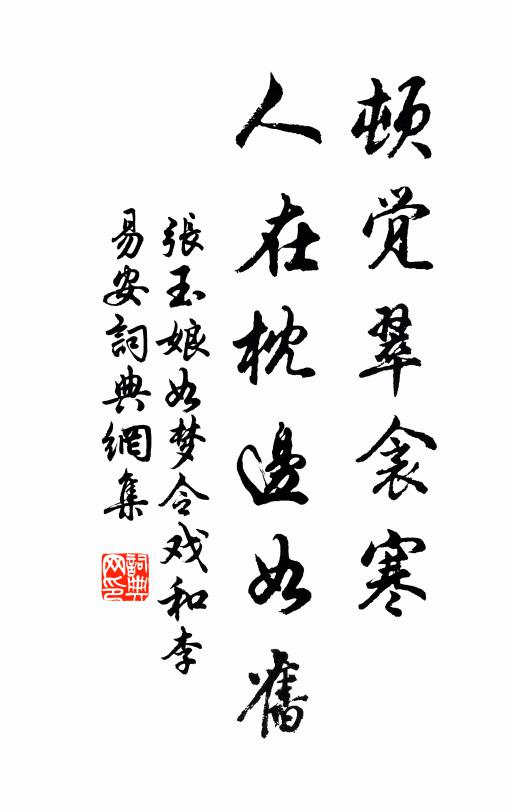 頓覚翠衾寒
人在枕邊如舊
張玉娘如梦令戏和李
易安詞典網集
詞典
网印